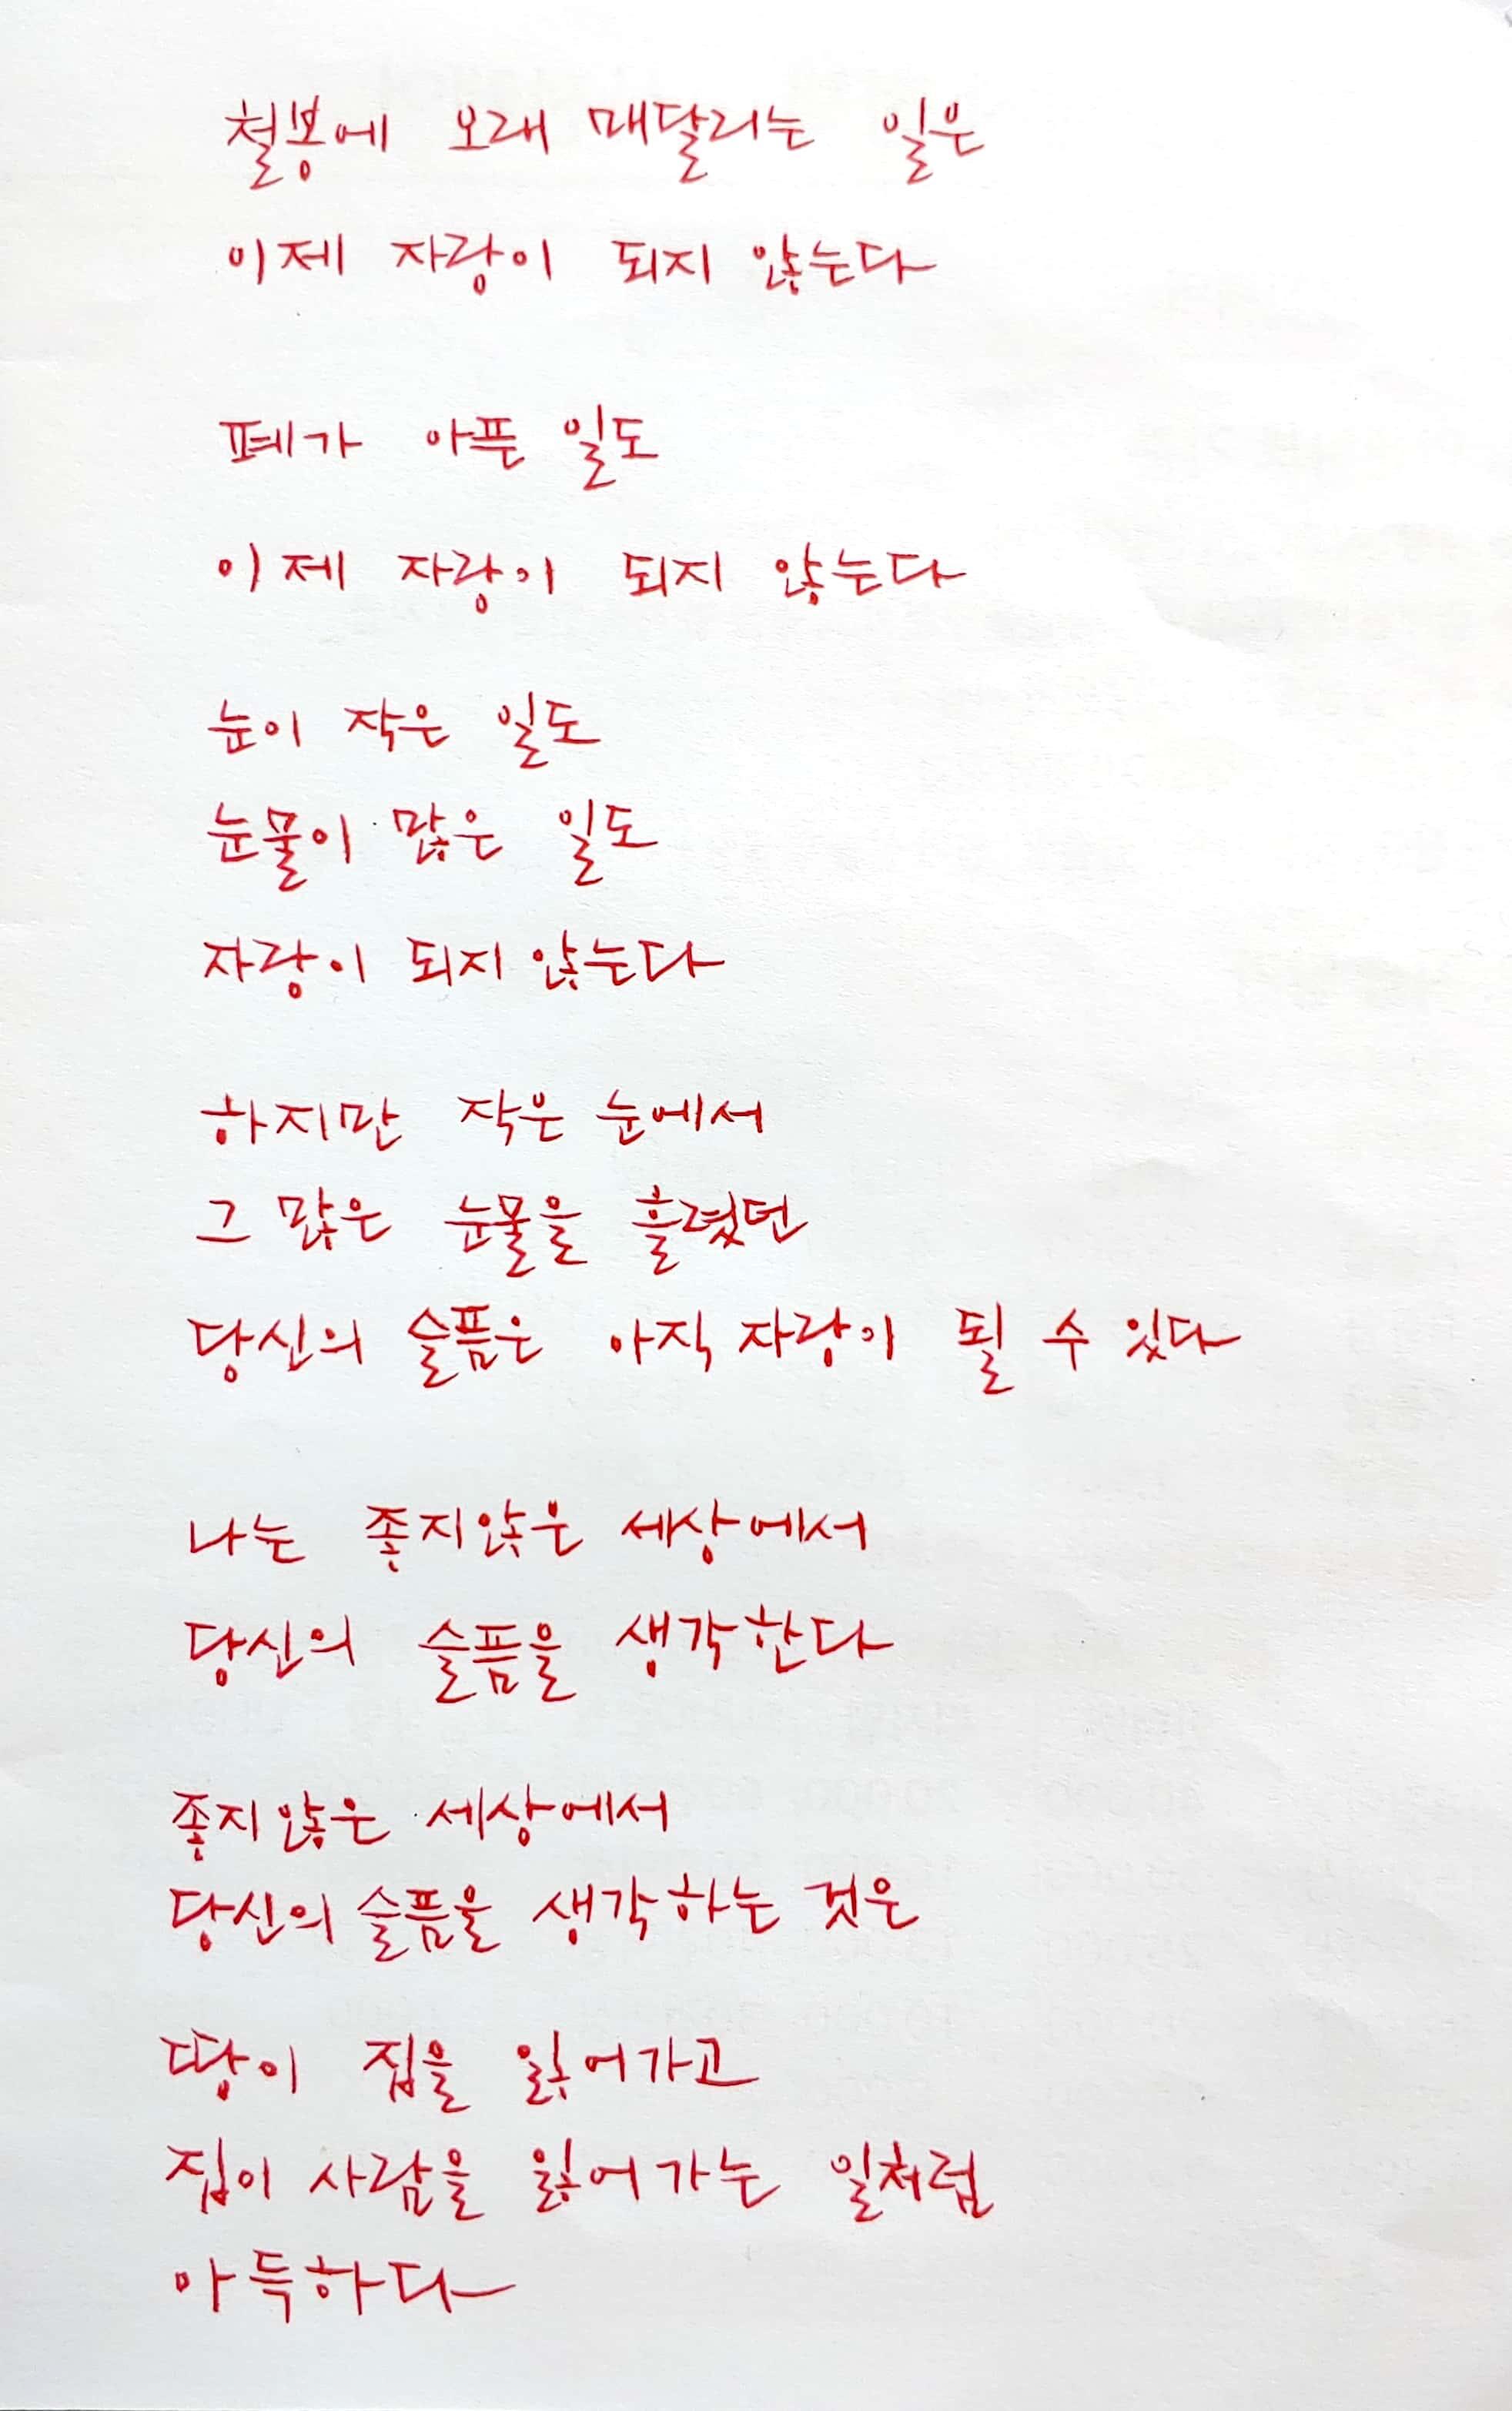 철봉에 오래 매달리는 일은
이제 자랑이 되지 않는다
폐가 아픈 일도
이제 자랑이 되지 않는다
눈이 작은 일도
눈물이 많은 일도
자랑이 되지 않는다
하지만 작은 눈에서
그 많은 눈물을 흘렸던
당신의 슬픔은 아직 자랑이 될 수 있다
나는 좋지않은 세상에서
당신의 슬픔을 생각한다
좋지않은 세상에서
당신의 슬픔을 생각하는 것은
땅이 집을 잃어가고
집이 사람을 잃어가는 일처럼
아득하다